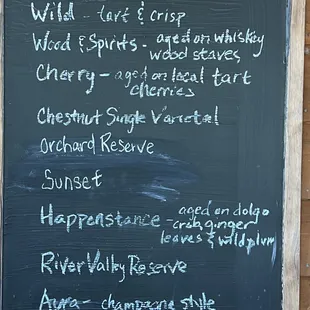 Wild - tart & crisp
Wood & Spirits - aged on whiskey
wood staves
Cherry - aged on local tart
cherries
Chestnut Single Varietal
Orchard Reserve
Sunset
Happenstance - aged on dolgo
crab, ginger
leaves & wild plum
River Valley Reserve
Aura - champagne style